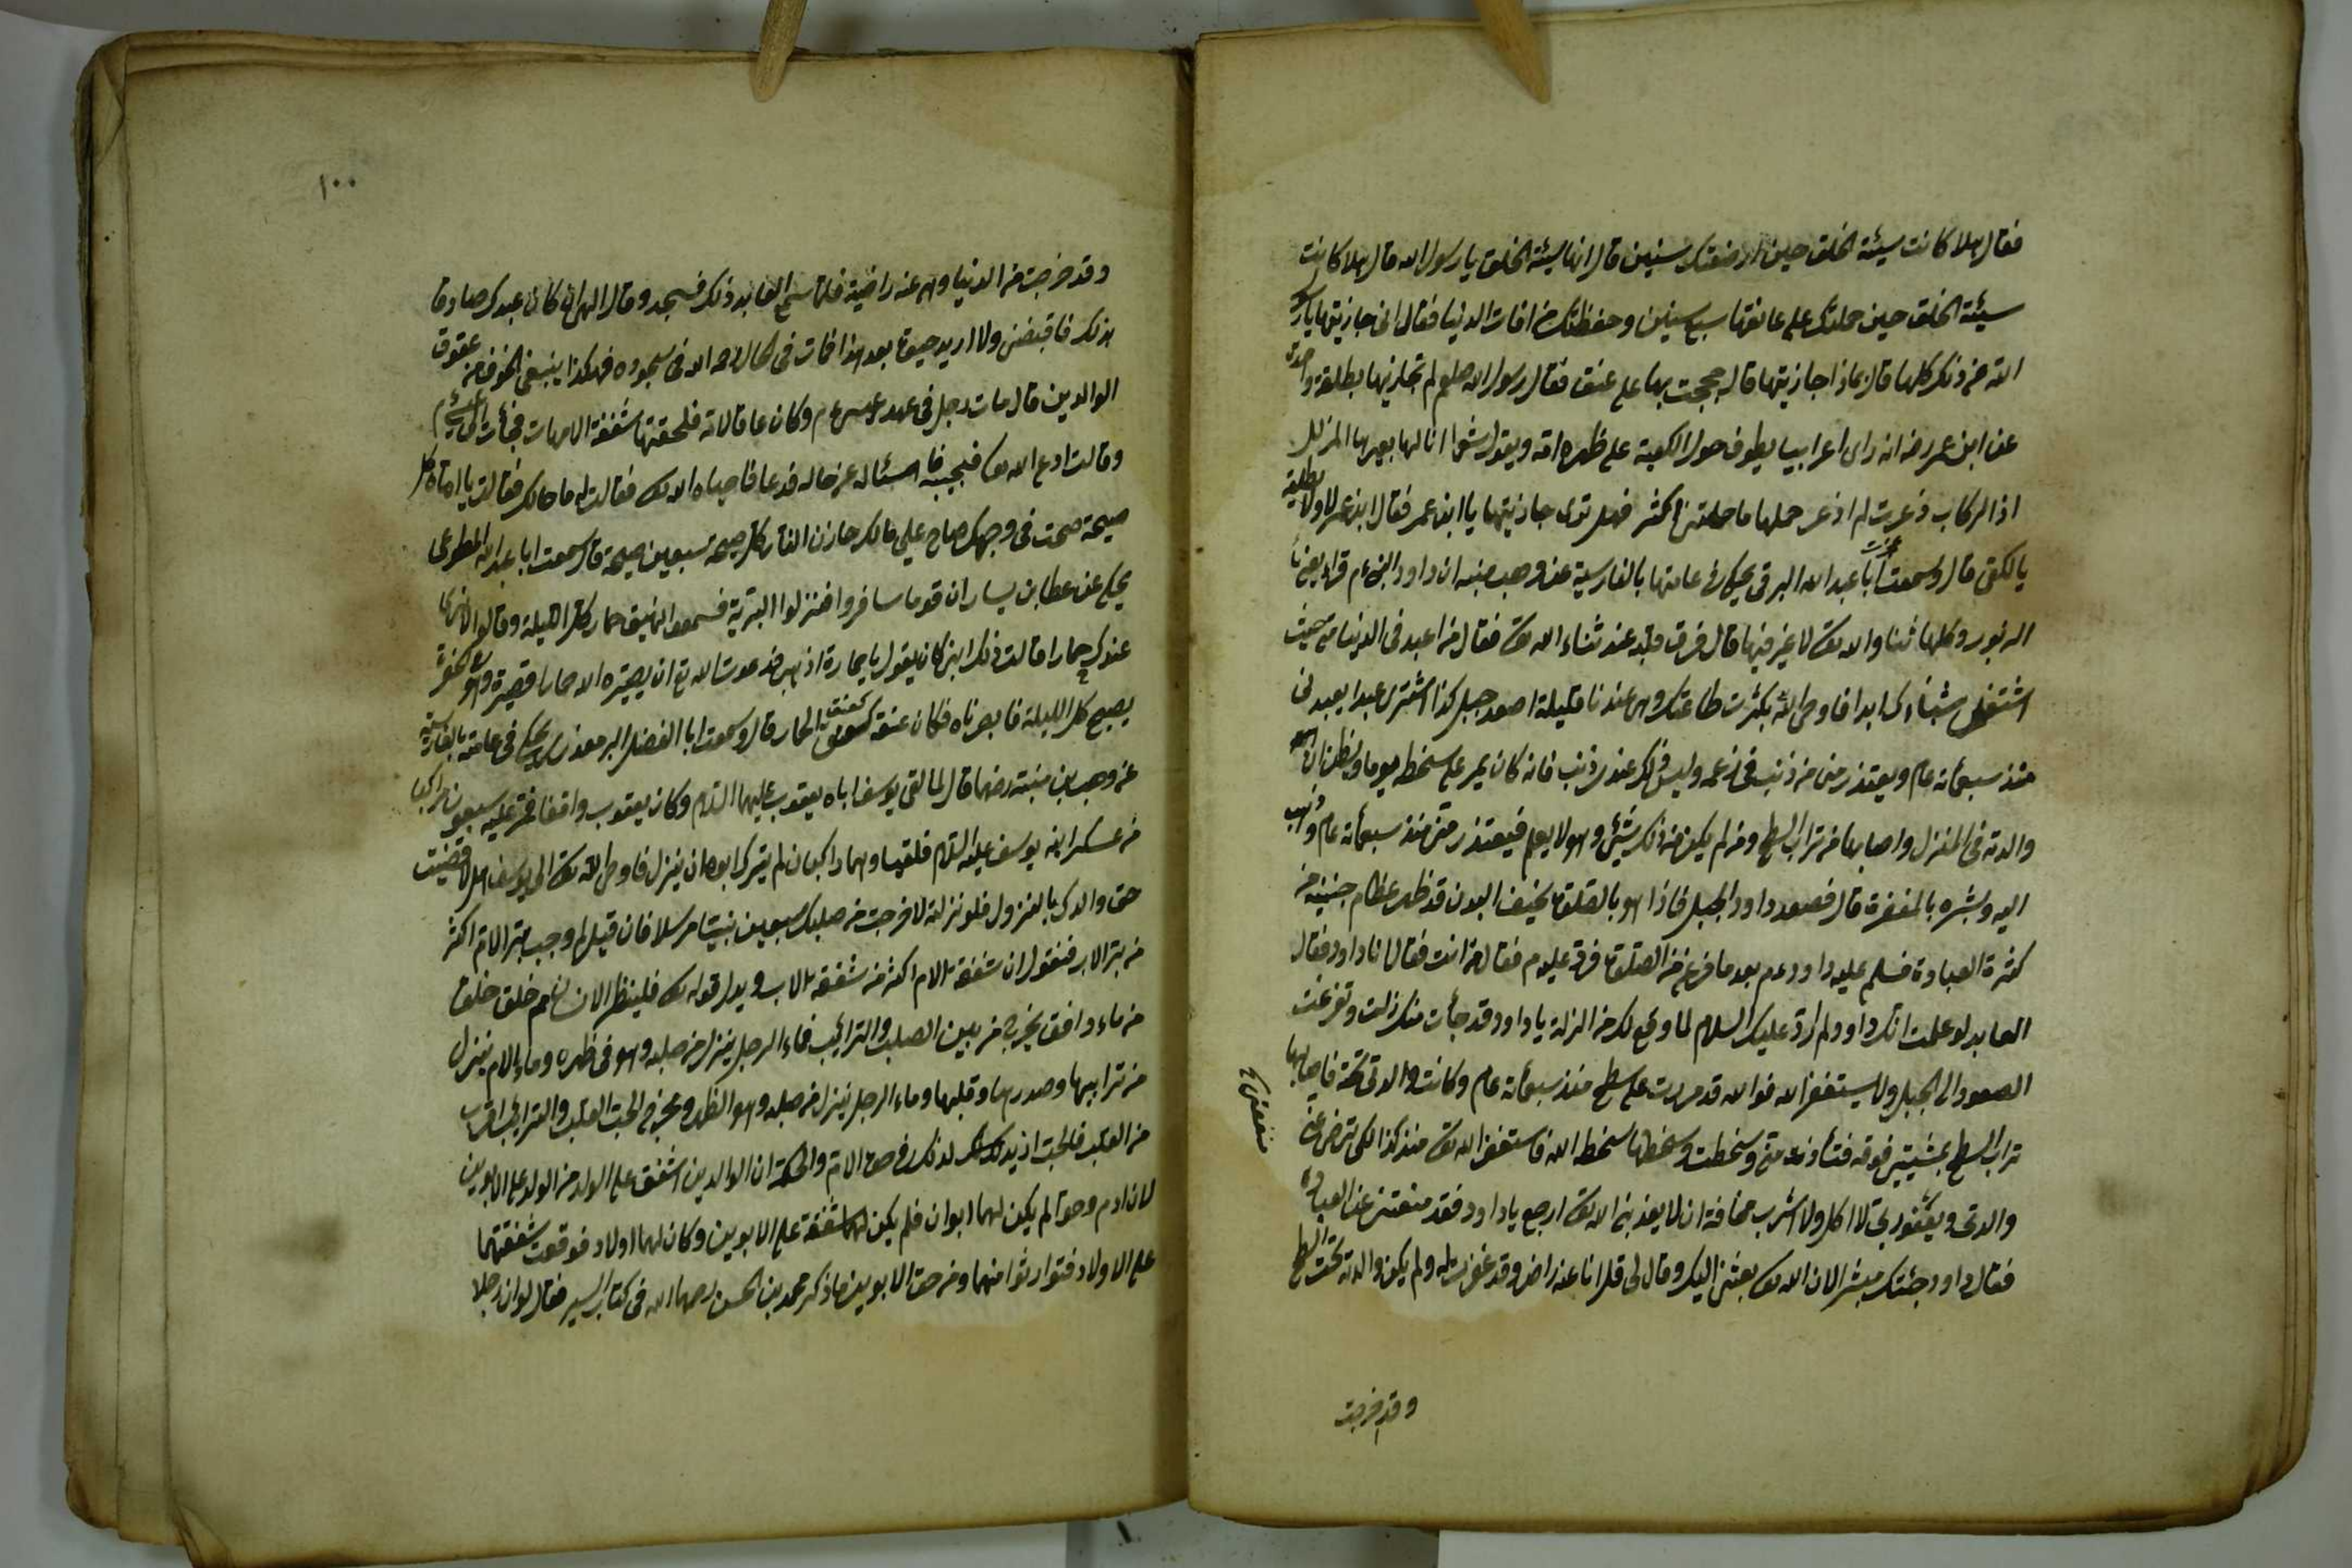 فقال هلا كانت سيئة الخلق حين ارضعتك سنين قال انها سيئة الخلق يا رسول الله قال هلا كانت
سيئة الخلق حين حملتك على عاتقها سبع سنين وحفظتك من افات الدنيا فقال انى جازيتها يا رسول
الله عن ذلك كلها قال بماذا جازيتها قال حججت بها على عنقى فقال رسول الله صلعم لم تجازيها بطلقة واحدة
عن ابن عمر رضه انه راى اعرابيا يطوف حول الكعبة على ظهره امه ويقول شعرا انا لها بعيرها المذلل
اذا الركاب ذعرت لم اذعر حملها ما حملتنى اكثر فهل ترى جازيتها يا ابن عمر فقال ابن عمر لا ولا بطلقة
يا لكع قال وسمعت ابا عبد الله البرقى يحكى فى عامتها بالفارسية عن وهب منبه ان داود النبى عم قراء يعنى
الزبور وكلها ثناء الله تعالى لا غير فيها قال فرق قلبه عند ثناء الله تعالى فقال من اعبد فى الدنيا منى حيث
اشتغلى بثناءك ابدا فاوحى الله بكثرت طاعتك وهى عندنا قليلة اصعد جبل كذا لترى عبدا يعبدنى
منذ سبعمائة عام ويعتذر منى من ذنب فى زعمه وليس ذلك عندى ذنب فانه كان يمر على سطحه يوما ويظن ان
والدته فى المنزل واصابها من تراب السطح ومن لم يكن من ذلك شئ وهو لا يعلم فيعتذر منى منذ سبعمائة عام فاذهب
اليه وبشره بالمغفرة قال فصعد داود الجبل فاذا هو بالصلوة نحيف البدن قد ظهر عظام جنبيه من
كثرة العبادة فسلم عليه داود عم بعد ما فرغ من الصلوة فرد عليه عم فقال من انت فقال انا داود فقال
العابد لو علمت انك داود لم ارد عليك السلام لما وقع لك من الزلة يا داود قد جأت منك زلت وتفرغت
الصعود الى الجبل ولا يستغفر الله فوالله قد مررت على سطح منذ سبعمائة عام وكانت والدتى تحته فاصابها
تراب السطح بمشيتى فوقه فتأذت منى وسخطت وسخطها سخط الله فاستغفر الله تعالى منذ كذا لكى ترضى عنى
والدتى ويغفر ربى لا اكل ولا اشرب مخافة ان لا يعذبنى الله تعالى ارجع يا داود فقد منعتنى عن العبادة
فقال داود جئتك مبشرا لان الله تعالى بعثنى اليك وقال لى قل انا عنه راض وقد غفرت له ولم يكن والدته تحت السطح
وقد خرجت
١٠٠
وقد خرجت من الدنيا وهى عنه راضية فلما سمع العابد ذلك فسجد وقال الهى ان كان عبدك صادقا
بذلك فاقبضنى ولا اريد حيوة بعد هذا فمات فى الحال رحمه الله فى سجوده فهكذا ينبغى الخوف من عقوق
الوالدين قال مات رجل فى عهد عيسى عم وكان عاقا لامه فلحقتها شفقة الامهات فجأت الى عيسى عم
وقالت ادع الله تعالى فيجيبه فاسئاله عن حاله فدعا فاحياه الله تعالى فقالت له ما حالك فقال يا اماه كل
صيحة صحت فى وجهك صاح على مالك خازن النار كل صيحة سبعين صيحة قال سمعت ابا عبد الله المطوعى
يحكى عن عطا بن يسار ان قوما سافروا فنزلوا البرية فسمعوا نهيق حمار كل الليلة وقالوا لانرى
عندك حمارا قالت ذلك ابنى كان يقول يا حمارة اذهبى فدعوت الله تع ان يصيره الله حمارا قصيره وهو
يصيح كل الليلة فابصرناه فكان عنقه كعنق الحمار قال وسمعت ابا الفضل البرمعذرى يحكى فى عامته بالفارسية
عن وهب بن منبه رضهما قال لما لقى يوسف اباه يعقوب عليهما السلام وكان يعقوب واقفا فمر عليه سبعون مركبا
من عسكر ابنه يوسف عليه السلام فلقيا وهما راكبان لم يترك ابوه ان ينزل فاوحى الله تعالى الى يوسف هلا قضيت
حق والدك بالنزول فلو نزلت لاخرجت من صلبك سبعين نبيا مرسلا فان قيل لم وجب بر الام اكثر
من بر الاب فنقول ان شفقة الام اكثر من شفقة الاب ويدل قوله تعالى فلينظر الانسان مم خلق خلق
من ماء دافق يخرج من بين الصلب والترائب فماء الرجل ينزل من صلبه وهو فى ظهره وماء الام ينزل
من ترايبها وصدرها وقلبها وماء الرجل ينزل من صلبه وهو الظهر ومخرج الحب القلب والترايب اقرب
من القلب فالحب ازيد لذلك فى حق الام والحكمة ان الوالدين اشفق على الولد من الولد على الابوين
لان ادم وحوا لم يكن لهما ابوان فلم يكن لهما شفقة على الابوين وكان لهما اولاد فوقعت شفقتهما
على الاولاد فتوارثوا منهما ومن حق الابوين ما ذكر محمد بن الحسن رحمه الله فى كتاب السير فقال لو ان رجلا